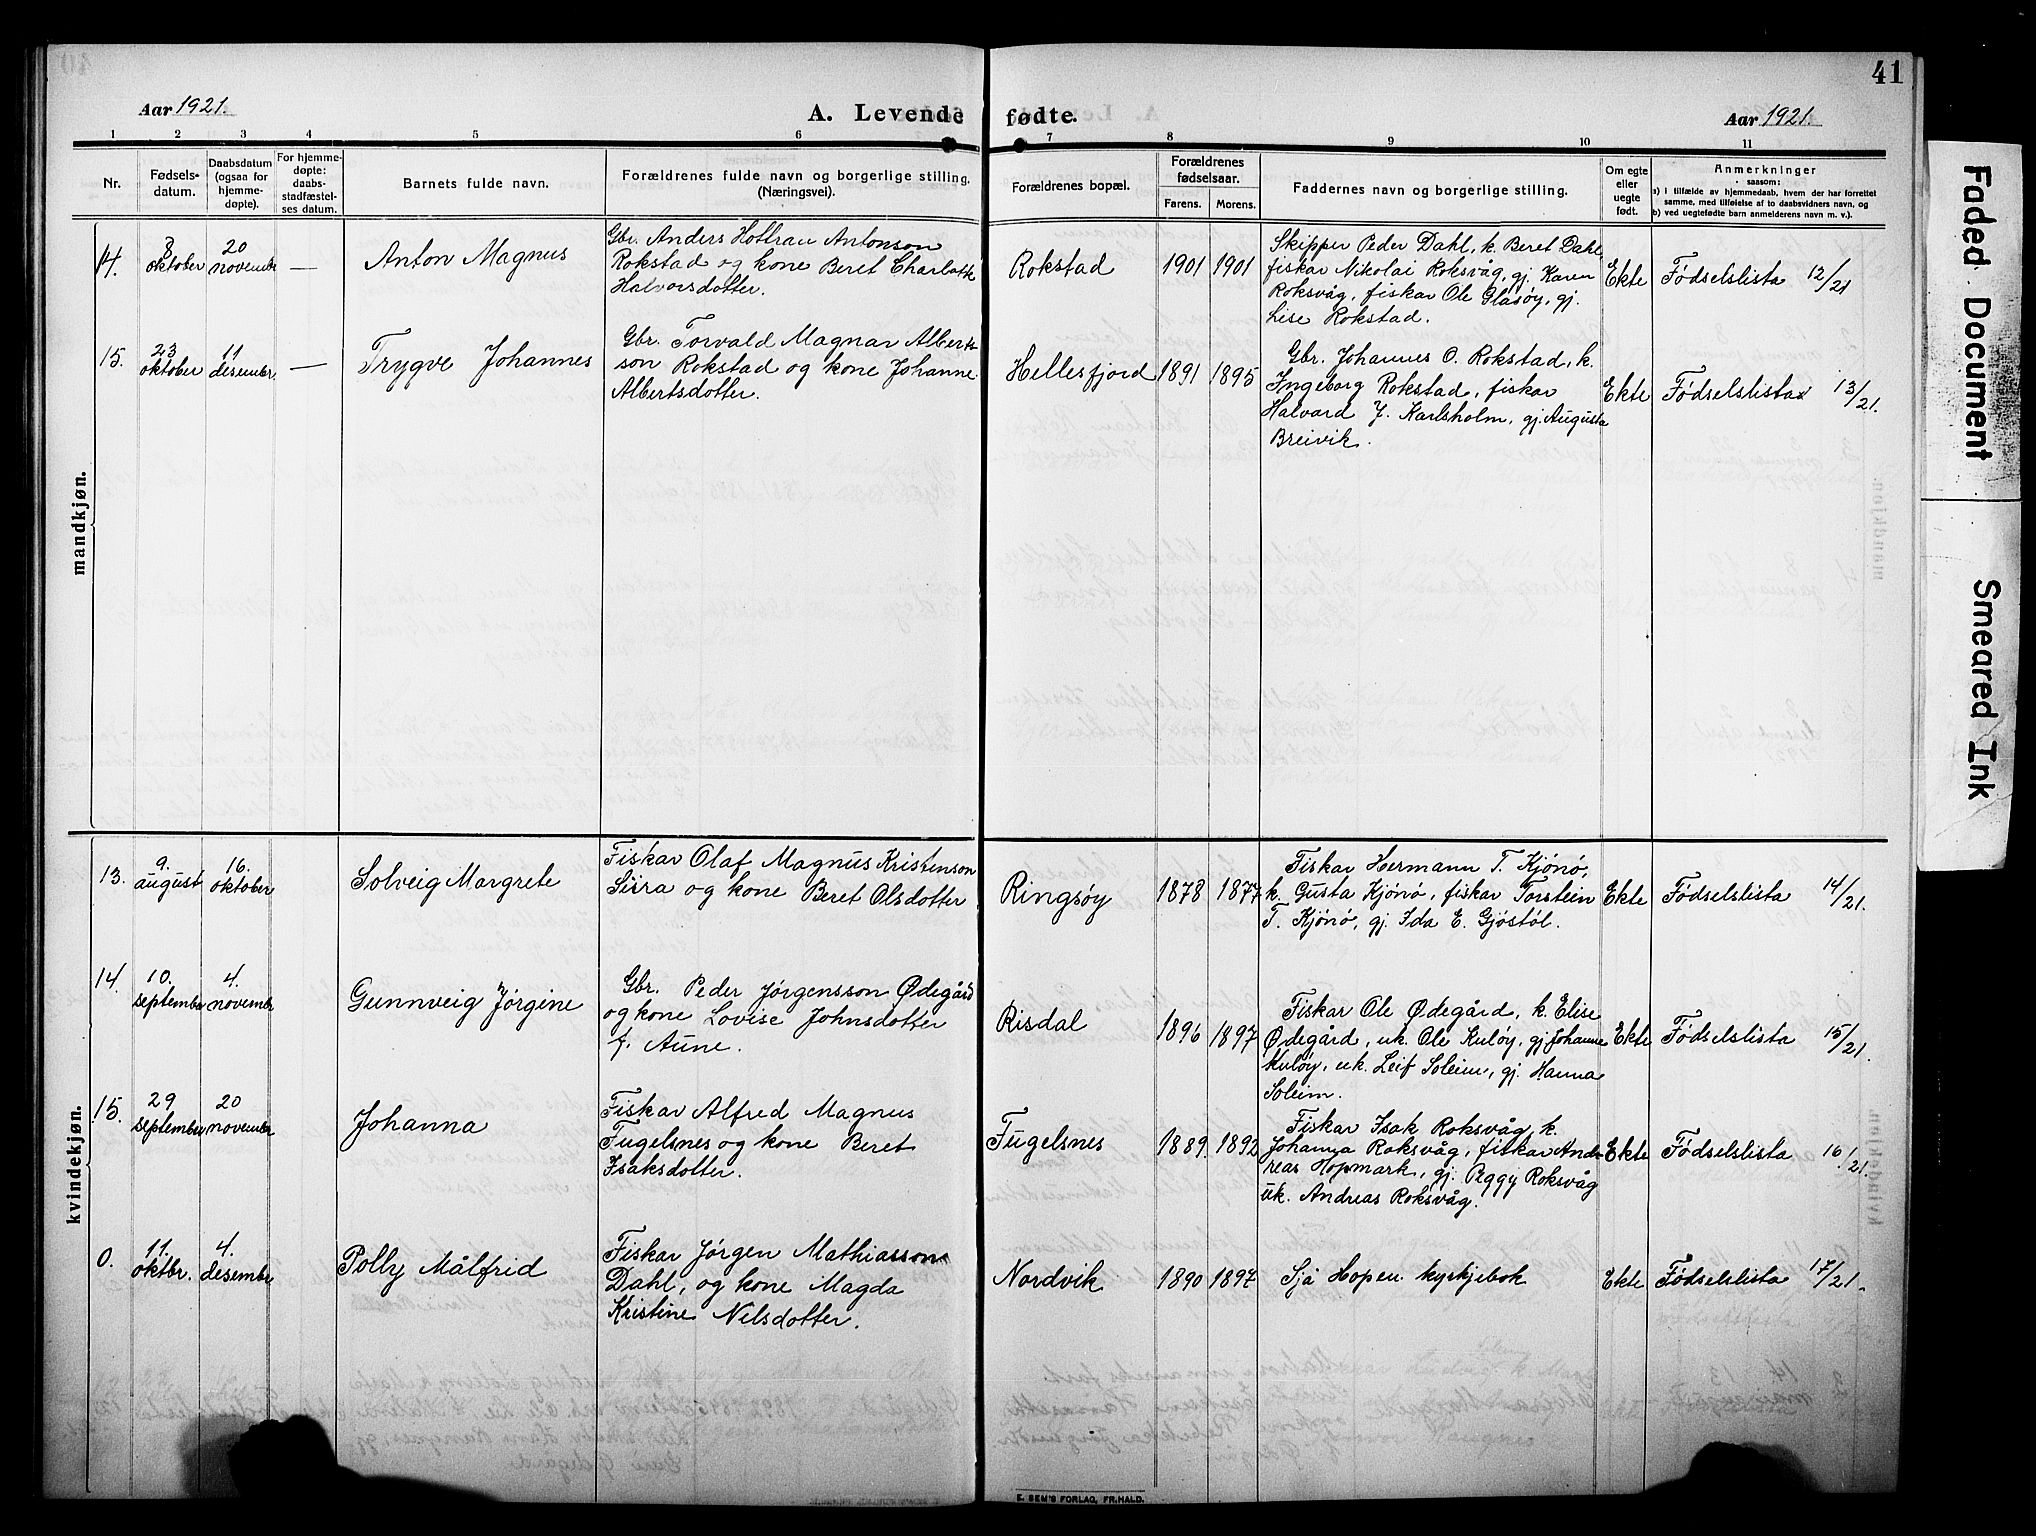 41
Aar 1921.
A. Levende fødte.
Aar 1921.
1 2 3 4 5 6 7 8 9 10 11
Nr.
Fødsels-
datum.
Daabsdatum
(ogsaa for
hjemme-
døpte).
For hjemme-
døpte:
daabs-
stadfæstel-
ses datum.
Barnets fulde navn.
Forældrenes fulde navn og borgerlige stilling.
(Næringsvei).
Forældrenes bopæl.
Forældrenes
fødselsaar.
Farens. Morens.
Faddernes navn og borgerlige stilling.
Om egte
eller
uegte
født.
Anmerkninger
saasom:
a) i tilfælde av hjemmedaab, hvem der har forrettet
samme, med tilføielse af to daabsvidners navn, og
b) ved uegtefødte barn anmelderens navn m. v.).
mandkjøn.
14.
8
oktober
20
novembr
—
Anton Magnus
Gbr. Anders Hottran Antonson
Rokstad og kone Beret Charlotte
Halvorsdotter.
Rokstad
1901 1901
Skipper Peder Dahl, k. Beret Dahl,
fiskar Nikolai Roksvåg, gj. Karen
Roksvåg, fiskar Ole Glasøy, gj.
Lise Rokstad.
Ekte
Fødselslista 12/21
15.
23
oktober
11
desembr.
—
Trygve Johannes
Gbr. Torvald Magnar Alberts-
son Rokstad og kone Johanne
Albertsdotter.
Hellesfjord
1891 1895
Gbr. Johannes O. Rokstad, k.
Ingeborg Rokstad, fiskar
Halvard J. Karlsholm, gj. Augusta
Breivik.
Ekte
Fødselslista 13/21.
kvindekjøn.
13.
9.
august
16.
oktober
Solveig Margrete
Fiskar Olaf Magnus Kristenson
Sisra og kone Beret Olsdotter
Ringsøy
1878 1877
Fiskar Hermann T. Kjönö,
k. Gusta Kjönö, fiskar Torstein
T. Kjönö, gj. Ida E. Gjöstöl.
Ekte
Fødselslista 14/21.
14.
10.
september
4.
novembr
Gunnveig Jørgine
Gbr. Peder Jørgensson Ødegård
og kone Lovise Johnsdotter
f. Aune.
Risdal
1896 1897
Fiskar Ole Ødegård, k. Elise
Ødegård, uk. Ole Kuløy, gj. Johanne
Kuløy, uk. Leif Soleim, gj. Hanna
Soleim.
Ekte
Fødselslista 15/21.
15.
29
september
20
novembr
Johanna
Fiskar Alfred Magnus
Fugelsnes og kone Beret
Isaksdotter.
Fugelsnes
1889. 1892
Fiskar Isak Roksvåg, k.
Johanna Roksvåg, fiskar And-
reas Hopmark, gj. Peggy Roksvåg
uk. Andreas Roksvåg.
Ekte
Fødselslista 16/21.
0.
11.
oktbr.
4.
desembr
Polly Målfrid
Fiskar Jørgen Mathiasson
Dahl, og kone Magda
Kristine Nilsdotter.
Nordvik
1890 1897
Sjå Hopen kyrkjebok
Ekte
Fødselslista 17/21.
E. SEM'S FORLAG, FR.HALD.
Faded Document
Smeared Ink